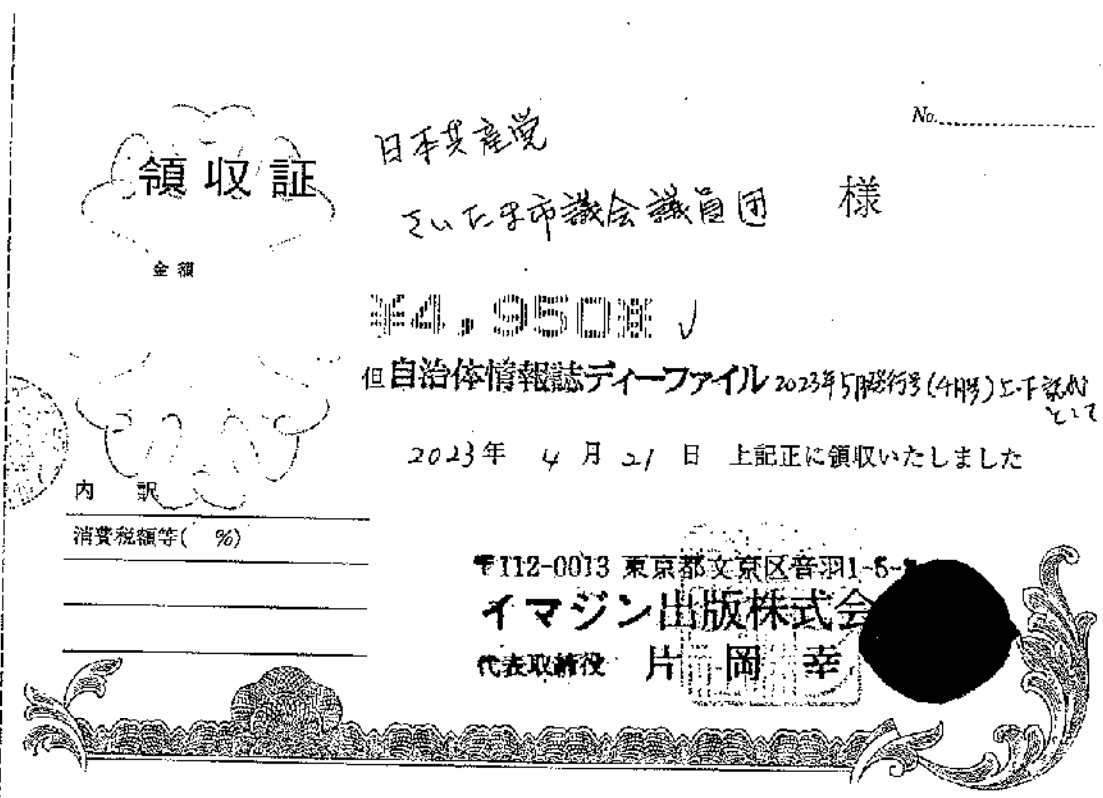 No.
領収証
日本共産党
さいたま市議会議員団 様
金額
¥4,950※
但 自治体情報誌ディーファイル 2023年5月発行号(4月号)上・下 誌代
として
2023年 4月 21日 上記正に領収いたしました
内 訳
消費税額等( %)
〒112-0013 東京都文京区音羽1-5-
イマジン出版株式会
代表取締役 片岡 幸